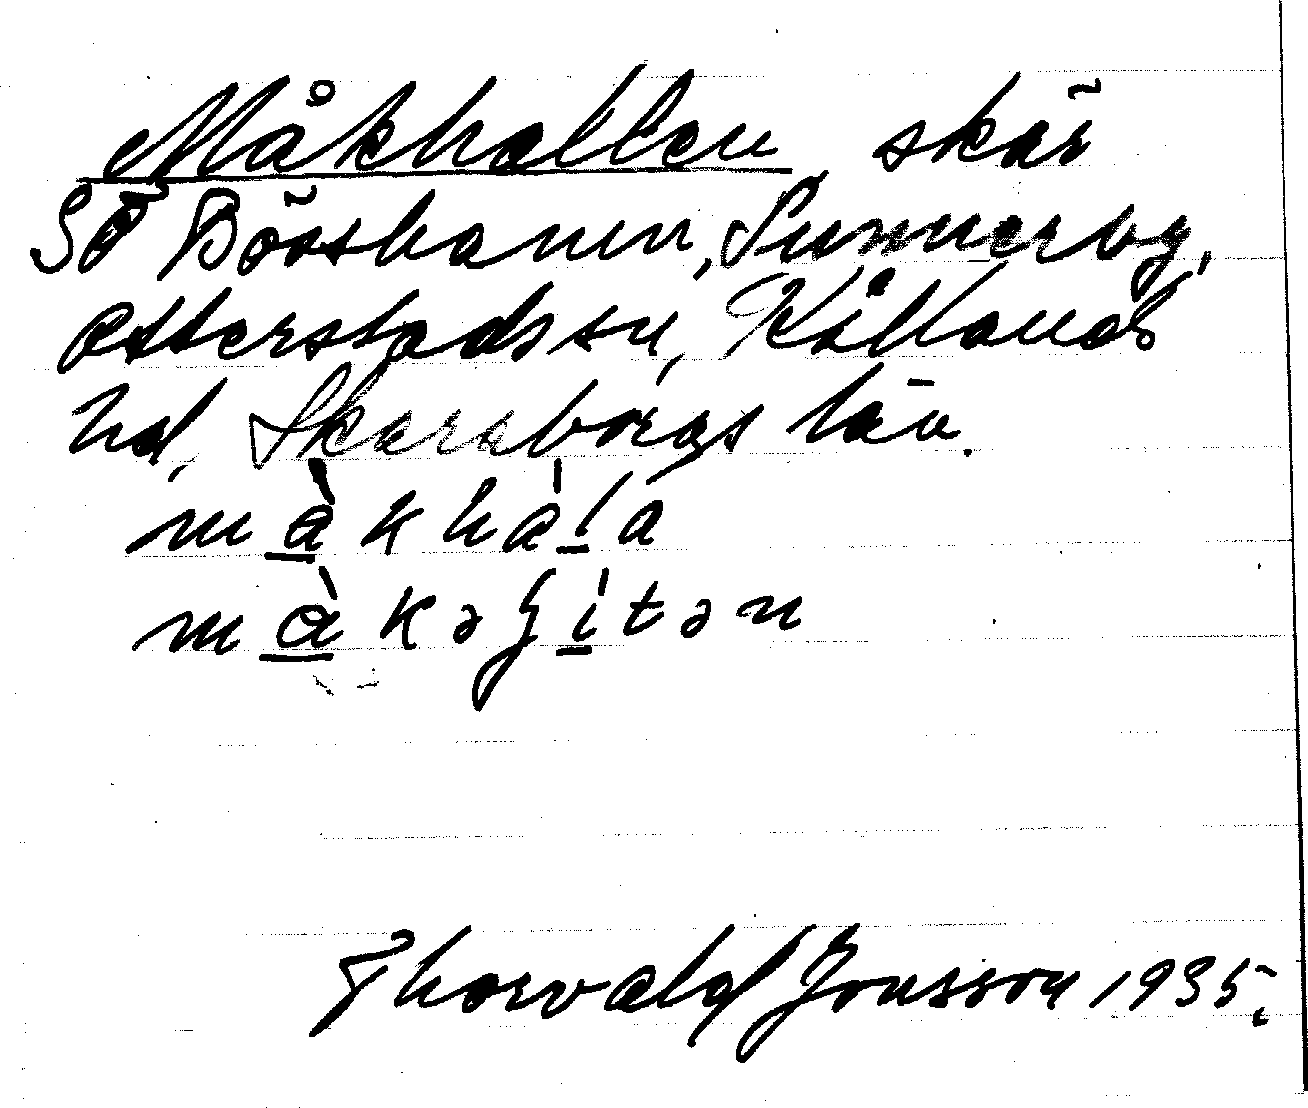 Måkhallen, skär
SÖ Bööshamn, Sunnerby,
Otterstads sn, Kållands
hd, Skaraborgs län.
må̀khàla
må̀kəʃitən
Thorvald Jonsson 1935.